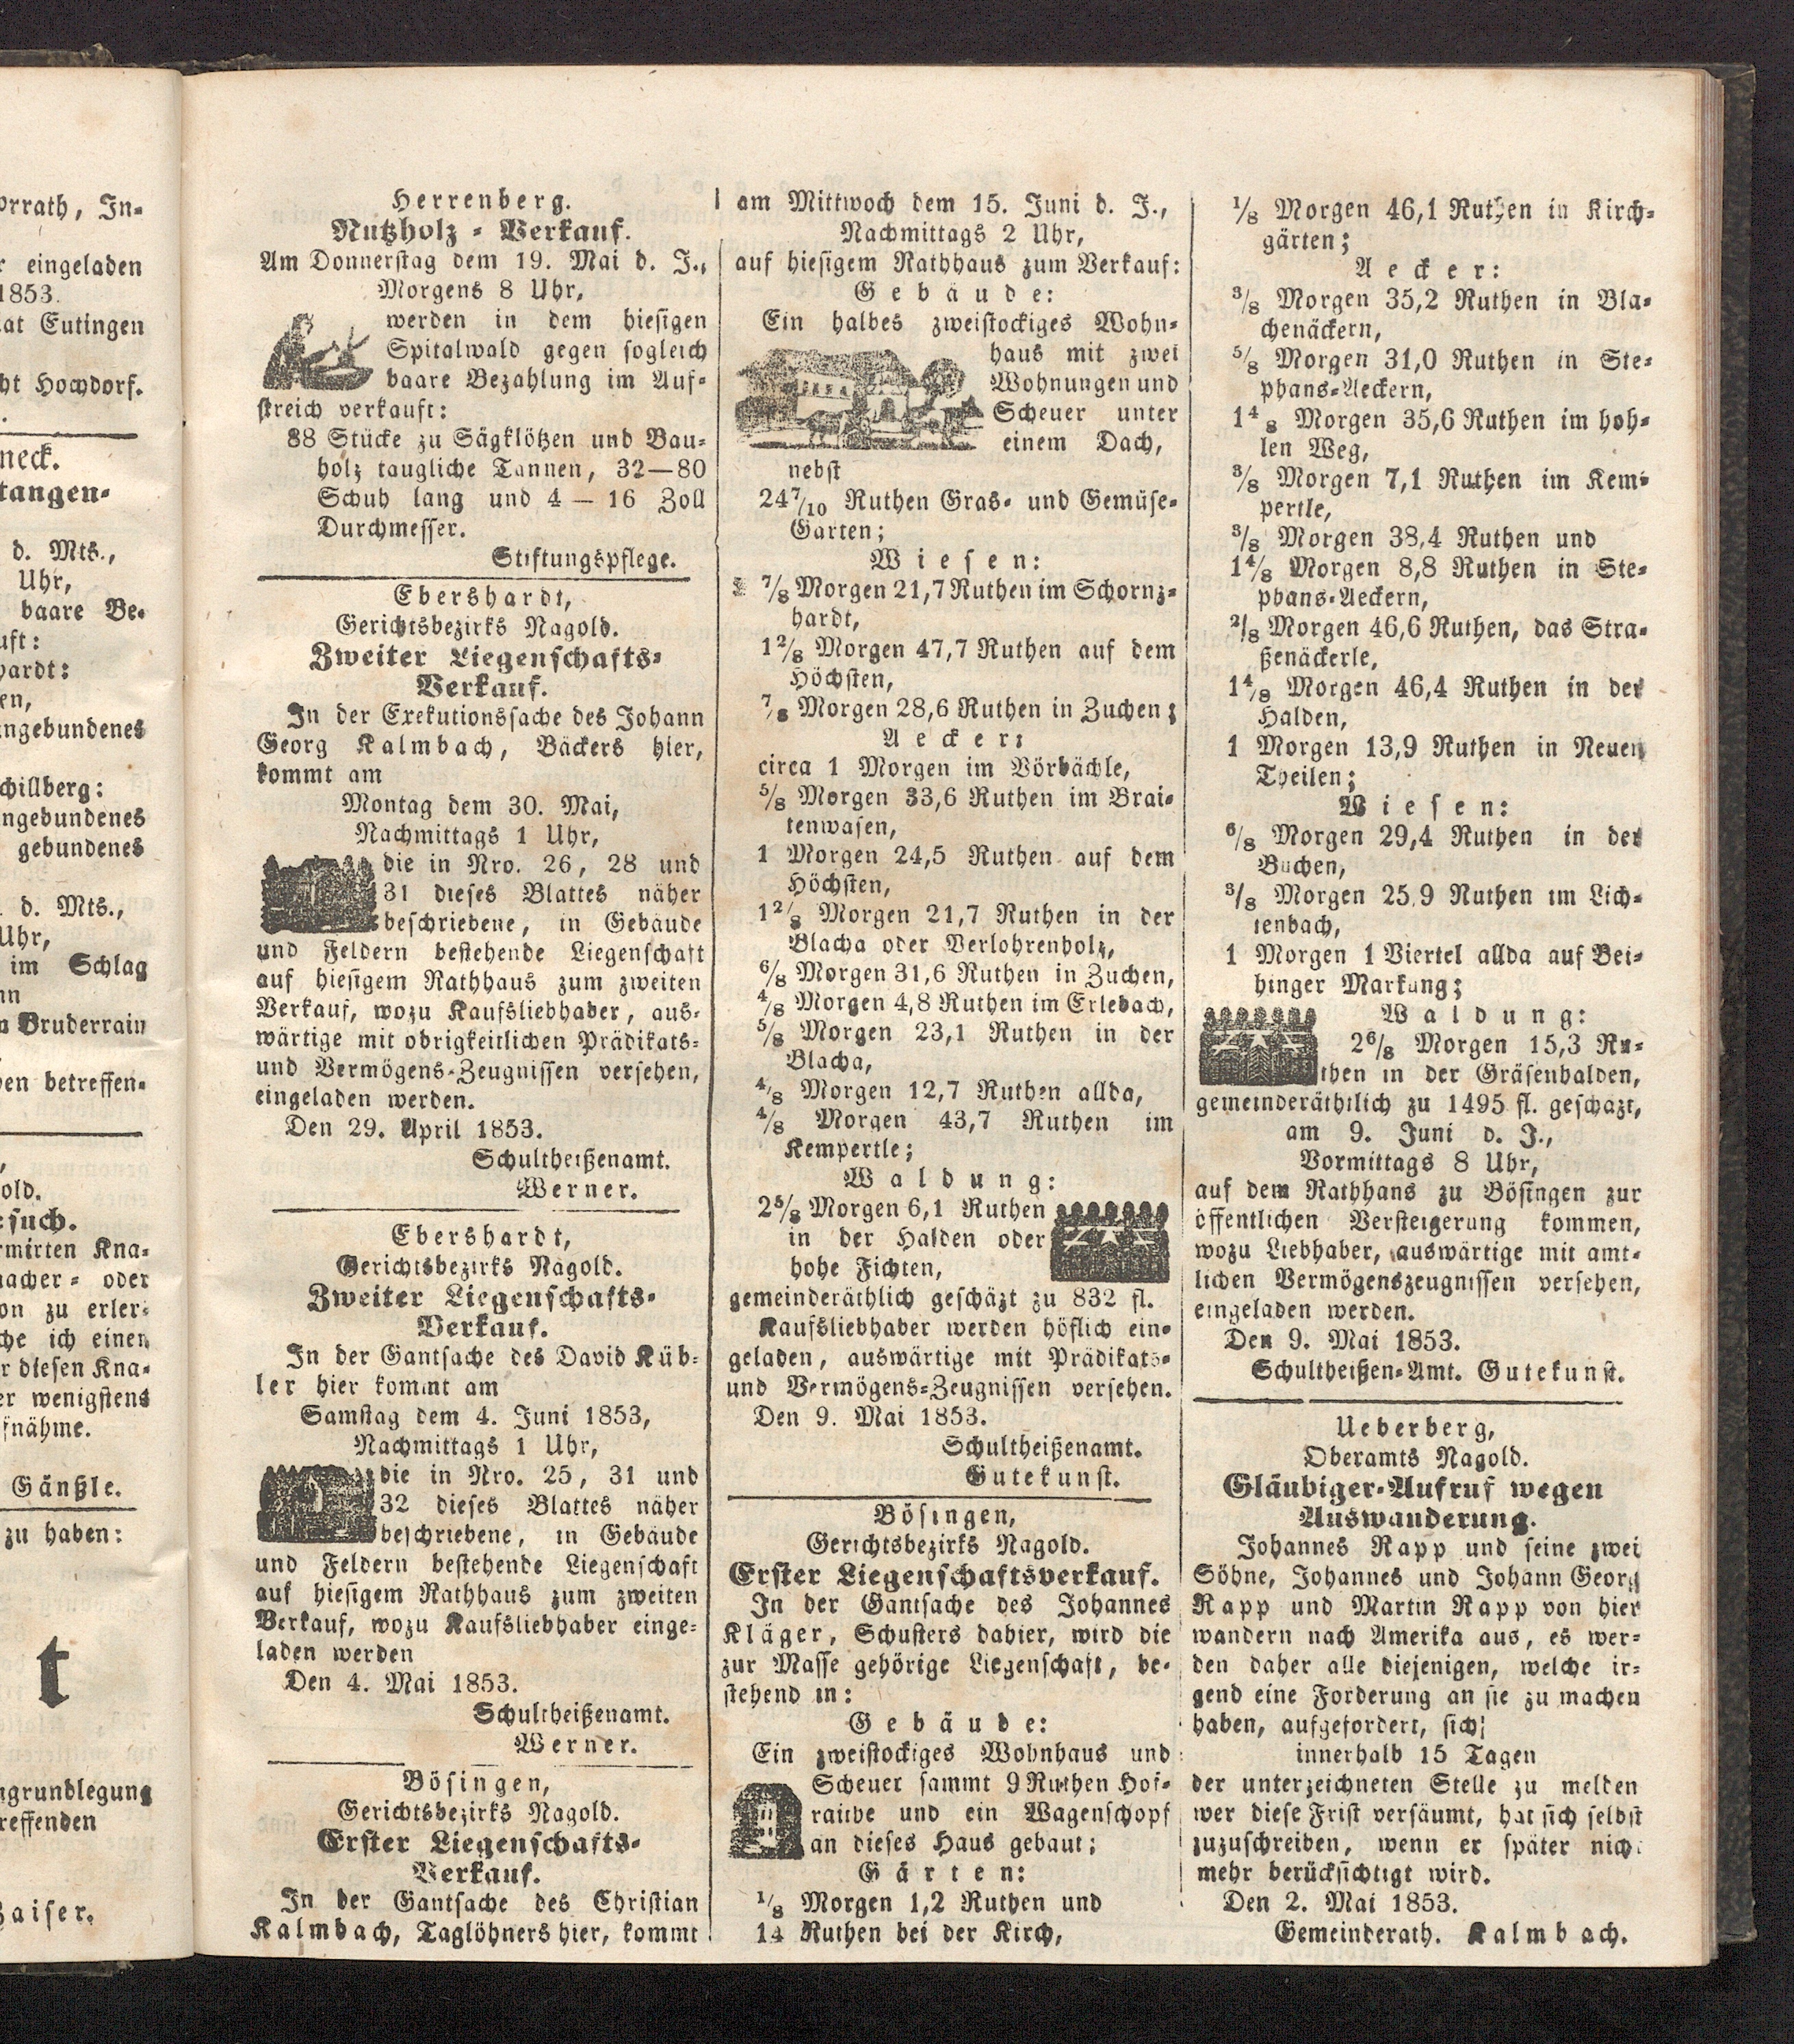 orrath, In-
r eingeladen
1853.
at Eutingen
ht Hochdorf.
neck.
tangen-
d. Mts.,
Uhr,
baare Be-
uft:
hardt:
en,
ngebundenes
chillberg:
ngebundenes
gebundenes
d. Mts.,
Uhr,
im Schlag
nn
n Bruderrain
en betreffen-
old.
esuch.
rmirten Kna-
acher- oder
on zu erler-
che ich einen
r diesen Kna-
er wenigstens
fnähme.
Gänßle.
zu haben:
t
grundlegung
reffenden
aiser.
Herrenberg.
Nutzholz-Verkauf.
Am Donnerstag dem 19. Mai d. J.,
Morgens 8 Uhr,
werden in dem hiesigen
Spitalwald gegen sogleich
baare Bezahlung im Auf-
streich verkauft:
38 Stücke zu Sägklötzen und Bau-
holz taugliche Tannen, 32—80
Schuh lang und 4 — 16 Zoll
Durchmesser.
Stiftungspflege.
Ebershardt,
Gerichtsbezirks Nagold.
Zweiter Liegenschafts-
Verkauf.
In der Exekutionssache des Johann
Georg Kalmbach, Bäckers hier,
kommt am
Montag dem 30. Mai,
Nachmittags 1 Uhr,
die in Nro. 26, 28 und
31 dieses Blattes näher
beschriebene, in Gebäude
und Feldern bestehende Liegenschaft
auf hiesigem Rathhaus zum zweiten
Verkauf, wozu Kaufsliebhaber, aus-
wärtige mit obrigkeitlichen Prädikats-
und Vermögens-Zeugnissen versehen,
eingeladen werden.
Den 29. April 1853.
Schultheißenamt.
Werner.
Ebershardt,
Gerichtsbezirks Nagold.
Zweiter Liegenschafts-
Verkauf.
In der Gantsache des David Küb-
ler hier kommt am
Samstag dem 4. Juni 1853,
Nachmittags 1 Uhr,
die in Nro. 25, 31 und
32 dieses Blattes näher
beschriebene, in Gebäude
und Feldern bestehende Liegenschaft
auf hiesigem Rathhaus zum zweiten
Verkauf, wozu Kaufsliebhaber einge-
laden werden
Den 4. Mai 1853.
Schultheißenamt.
Werner.
Bösingen,
Gerichtsbezirks Nagold.
Erster Liegenschafts-
Verkauf.
In der Gantsache des Christian
Kalmbach, Taglöhners hier, kommt
am Mittwoch dem 15. Juni d. J.,
Nachmittags 2 Uhr,
auf hiesigem Rathhaus zum Verkauf:
Gebäude:
Ein halbes zweistockiges Wohn-
haus mit zwei
Wohnungen und
Scheuer unter
einem Dach,
nebst
24 7/10 Ruthen Gras- und Gemüse-
Garten;
Wiesen:
7/8 Morgen 21,7 Ruthen im Schornz-
hardt,
1 2/8 Morgen 47,7 Ruthen auf dem
Höchsten,
7/8 Morgen 28,6 Ruthen in Zuchen;
Aecker:
circa 1 Morgen im Vörbächle,
5/8 Morgen 33,6 Ruthen im Brai-
tenwasen,
1 Morgen 24,5 Ruthen auf dem
Höchsten,
1 2/8 Morgen 21,7 Ruthen in der
Blacha oder Verlohrenholz,
6/8 Morgen 31,6 Ruthen in Zuchen,
4/8 Morgen 4,8 Ruthen im Erlebach,
5/8 Morgen 23,1 Ruthen in der
Blacha,
4/8 Morgen 12,7 Ruthen allda,
4/8 Morgen 43,7 Ruthen im
Kempertle;
Waldung:
2 5/8 Morgen 6,1 Ruthen
in der Halden oder
hohe Fichten,
gemeinderäthlich geschäzt zu 832 fl.
Kaufsliebhaber werden höflich ein-
geladen, auswärtige mit Prädikats-
und Vermögens-Zeugnissen versehen.
Den 9. Mai 1853.
Schultheißenamt.
Gutekunst.
Bösingen,
Gerichtsbezirks Nagold.
Erster Liegenschaftsverkauf.
In der Gantsache des Johannes
Kläger, Schusters dahier, wird die
zur Masse gehörige Liegenschaft, be-
stehend in:
Gebäude:
Ein zweistockiges Wohnhaus und
Scheuer sammt 9 Ruthen Hof-
raithe und ein Wagenschopf
an dieses Haus gebaut;
Gärten:
1/8 Morgen 1,2 Ruthen und
14 Ruthen bei der Kirch,
1/8 Morgen 46,1 Ruthen in Kirch-
gärten;
Aecker:
3/8 Morgen 35,2 Ruthen in Bla-
chenäckern,
5/8 Morgen 31,0 Ruthen in Ste-
phans-Aeckern,
1 4/8 Morgen 35,6 Ruthen im hoh-
len Weg,
3/8 Morgen 7,1 Ruthen im Kem-
pertle,
3/8 Morgen 38,4 Ruthen und
1 4/8 Morgen 8,8 Ruthen in Ste-
phans-Aeckern,
2/8 Morgen 46,6 Ruthen, das Stra-
ßenäckerle,
1 4/8 Morgen 46,4 Ruthen in der
Halden,
1 Morgen 13,9 Ruthen in Neuen
Theilen;
Wiesen:
6/8 Morgen 29,4 Ruthen in der
Buchen,
3/8 Morgen 25,9 Ruthen im Lich-
tenbach,
1 Morgen 1 Viertel allda auf Bei-
hinger Markung;
Waldung:
2 6/8 Morgen 15,3 Ru-
then in der Gräsenhalden,
gemeinderäthtlich zu 1495 fl. geschazt,
am 9. Juni d. J.,
Vormittags 8 Uhr,
auf dem Rathhans zu Bösingen zur
öffentlichen Versteigerung kommen,
wozu Liebhaber, auswärtige mit amt-
lichen Vermögenszeugnissen versehen,
eingeladen werden.
Den 9. Mai 1853.
Schultheißen-Amt. Gutekunst.
Ueberberg,
Oberamts Nagold.
Gläubiger-Aufruf wegen
Auswanderung.
Johannes Rapp und seine zwei
Söhne, Johannes und Johann Georg
Rapp und Martin Rapp von hier
wandern nach Amerika aus, es wer-
den daher alle diejenigen, welche ir-
gend eine Forderung an sie zu machen
haben, aufgefordert, sich
innerhalb 15 Tagen
der unterzeichneten Stelle zu melden
wer diese Frist versäumt, hat sich selbst
zuzuschreiben, wenn er später nich
mehr berücksichtigt wird.
Den 2. Mai 1853.
Gemeinderath. Kalmbach.